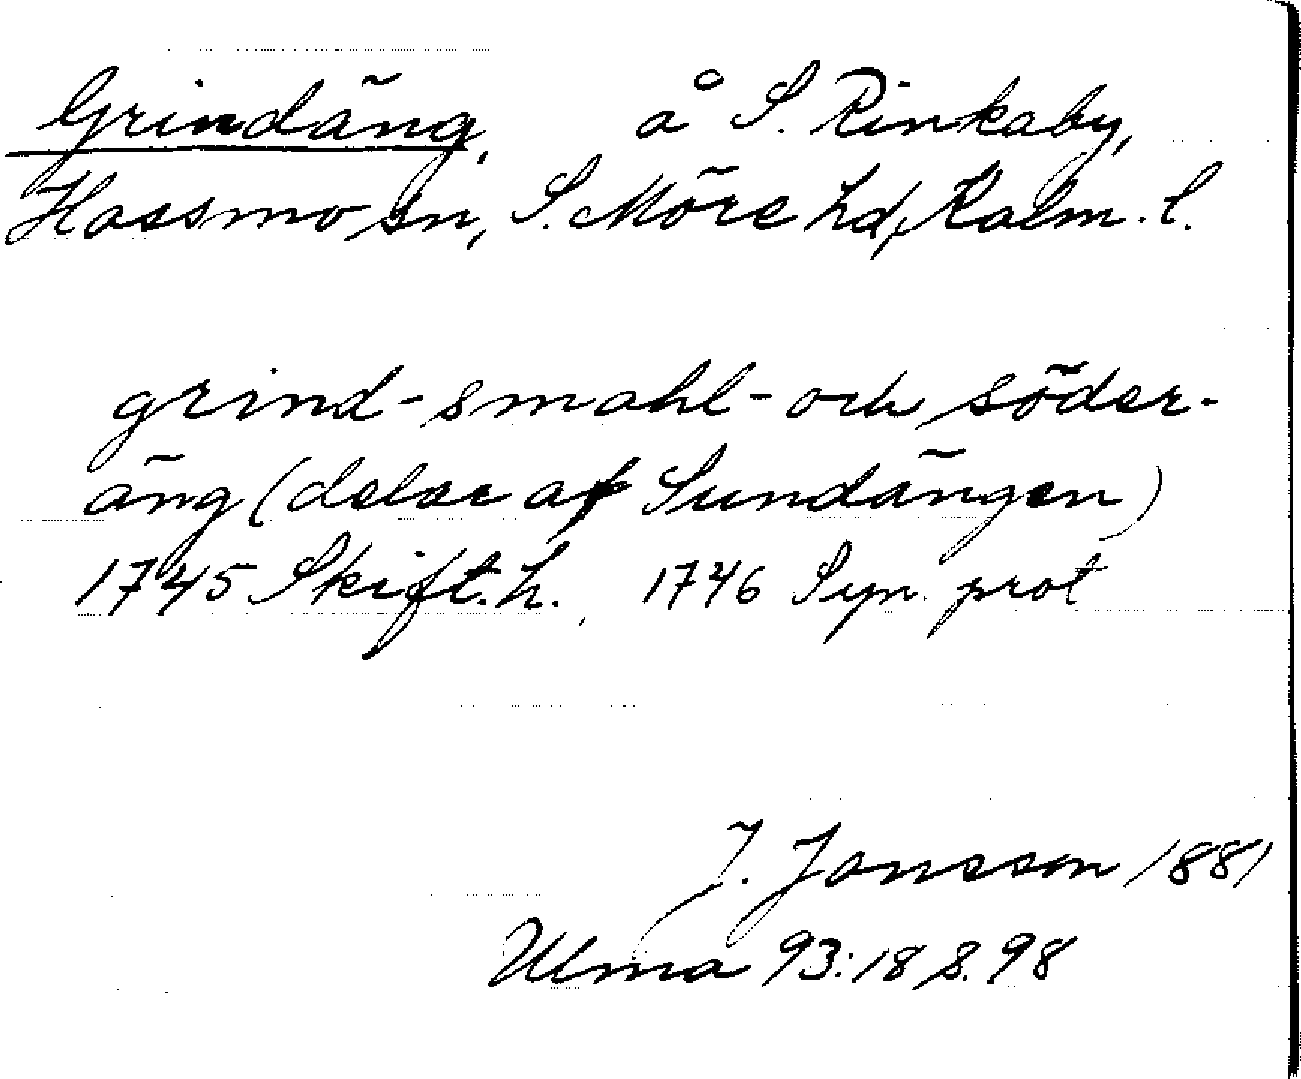 Grindäng, å S. Rinkaby,
Hossmo sn, S. Möre hd, Kalm. l.
grind- smahl- och söder-
äng (delar af Sundängen)
1745 Skift.h. 1746 Syn. prot
J. Jonsson 1881
Ulma 93:18 s. 98